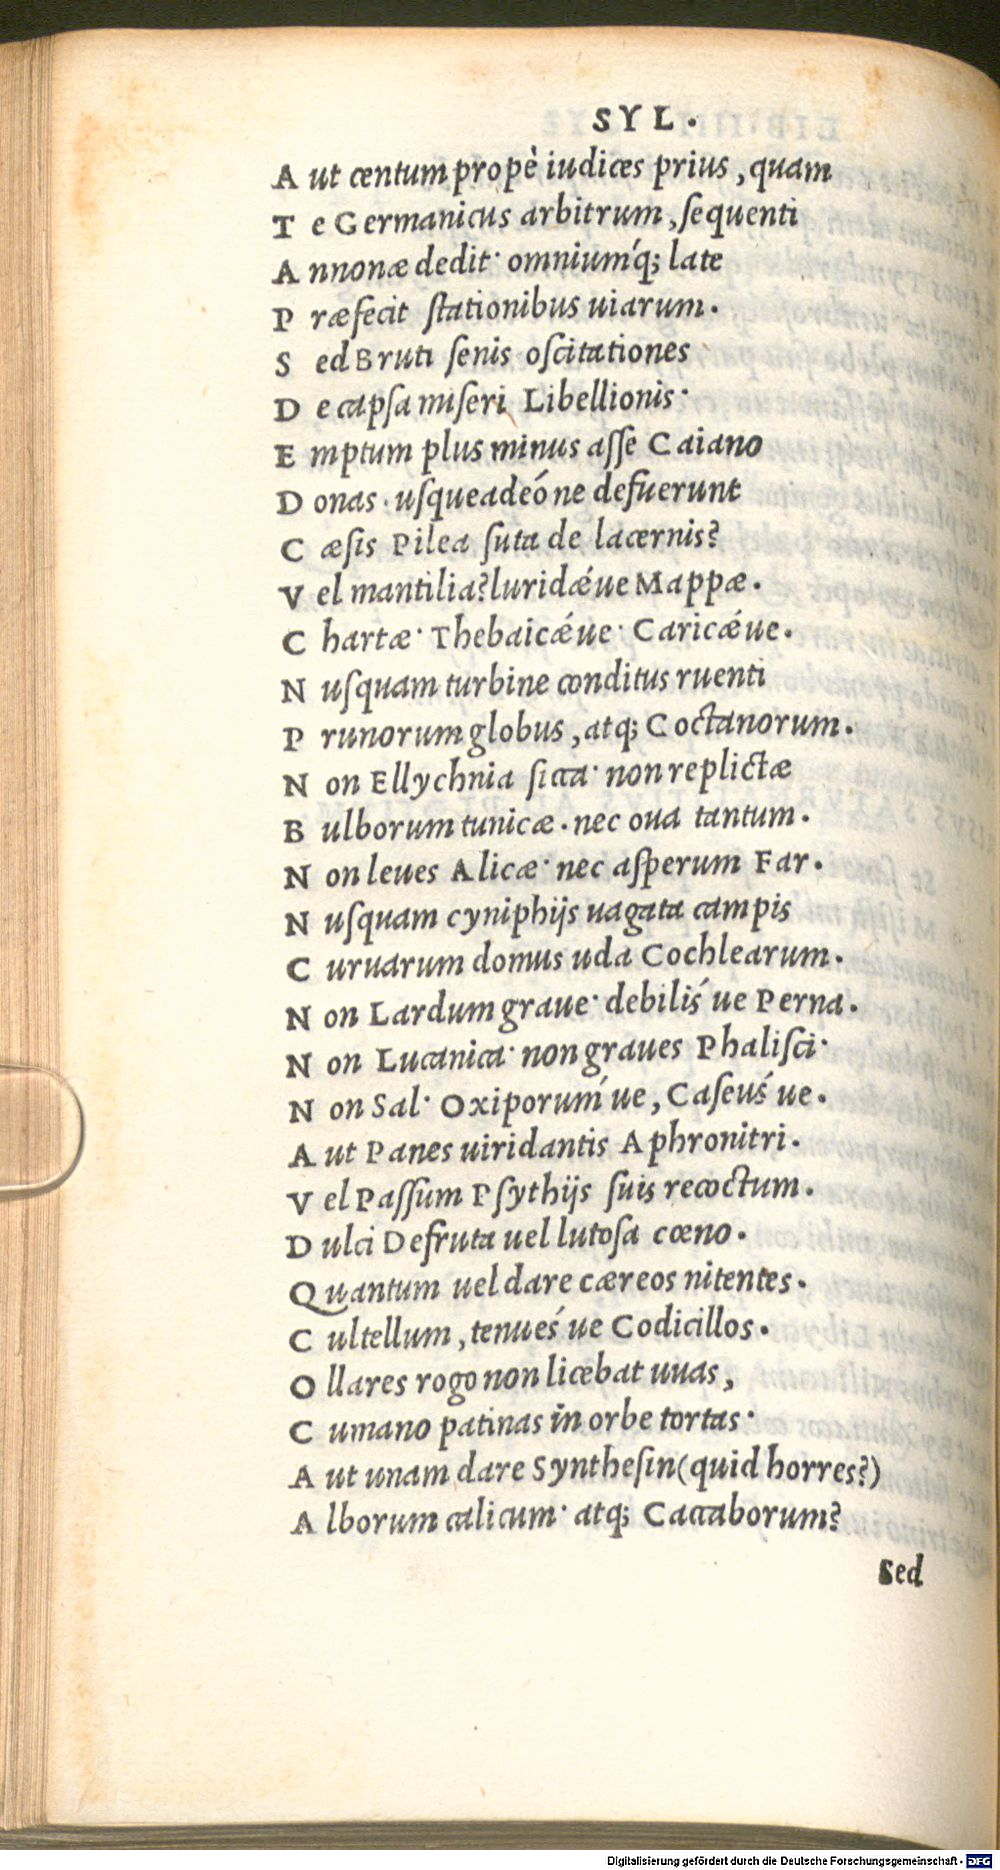 SYL.
A ut centum propè iudices prius, quam
T e Germanicus arbitrum, sequenti
A nnonæ dedit· omniumq́; late
P ræfecit stationibus uiarum.
S ed Bruti senis oscitationes
D e capsa miseri Libellionis·
E mptum plus minus asse Caiano
D onas. usqueadeóne defuerunt
C æsis Pilea suta de lacernis?
V el mantilia? luridǽue Mappæ.
C hartæ· Thebaicǽue· Caricǽue.
N usquam turbine conditus ruenti
P runorum globus, atq; Coctanorum.
N on Ellychnia sicca· non replictæ
B ulborum tunicæ. nec oua tantum.
N on leues Alicæ· nec asperum Far.
N usquam cyniphijs uagata campis
C uruarum domus uda Cochlearum.
N on Lardum graue· debiliś ue Perna.
N on Lucanica· non graues Phalisci·
N on Sal· Oxiporuḿ ue, Caseuś ue.
A ut Panes uiridantis Aphronitri.
V el Passum Psythijs suis recoctum.
D ulci Defruta uel lutosa cœno.
Q uantum uel dare cæreos nitentes.
C ultellum, tenueś ue Codicillos.
O llares rogo non licebat uuas,
C umano patinas in orbe tortas·
A ut unam dare Synthesin (quid horres?)
A lborum calicum· atq; Caccaborum?
Sed
Digitalisierung gefördert durch die Deutsche Forschungsgemeinschaft - DFG